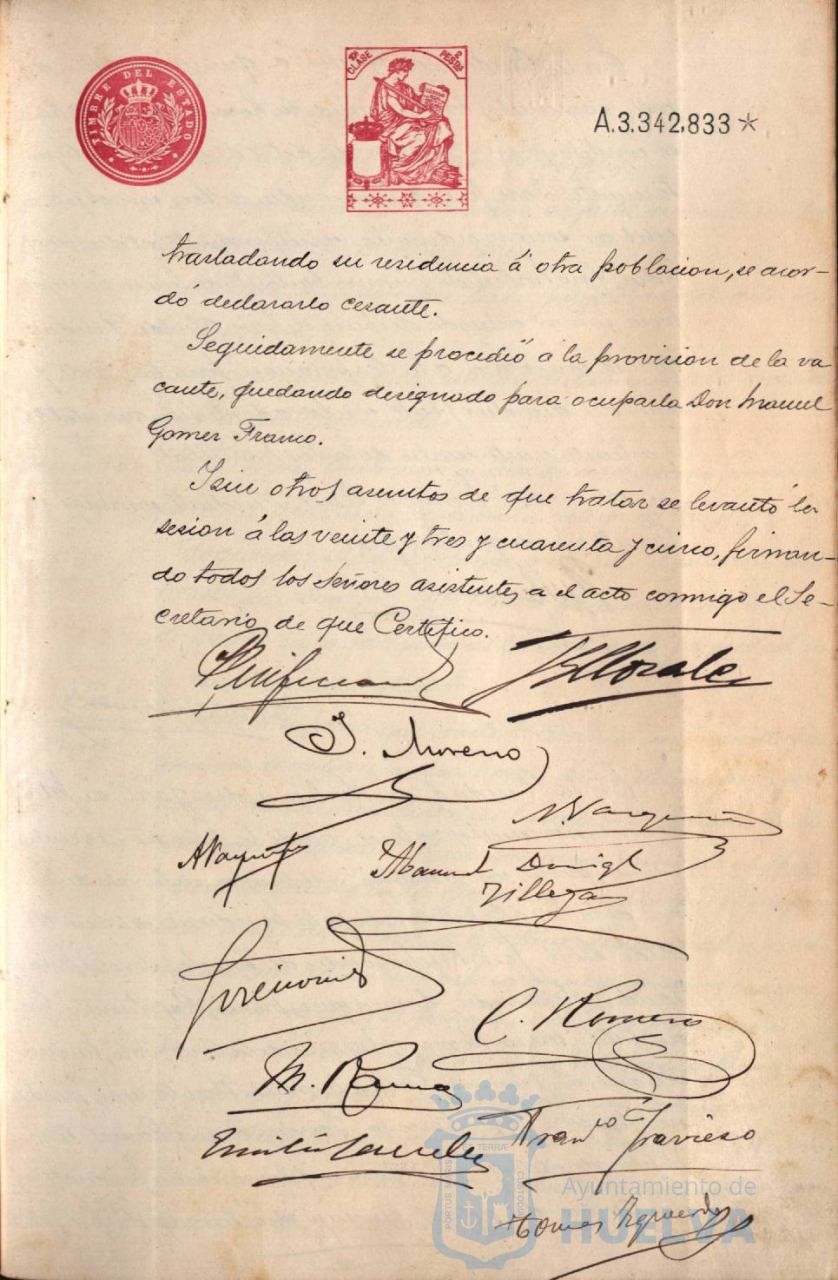 TIMBRE DEL ESTADO
10ª CLASE 2 PESETAS
A.3.342,833*
trasladando su residencia á otra poblacion, se acor-
dó declararlo cesante.
Seguidamente se procedió á la provision de la va
cante, quedando designado para ocuparla Don Manuel
Gomez Franco.
Y sin otros asuntos de que tratar se levantó la
sesion á las veinte y tres y cuarenta y cinco, firman-
do todos los Señores asistentes a el acto conmigo el Se-
cretario, de que Certifico.
J. Moreno
Manuel
Villegas
C. Romero
M.
Emilio
Franco Travieso
Tomas Izquierdo
PORTUS MARIS ET TERRAE CUSTODIA
Ayuntamiento de
HUELVA